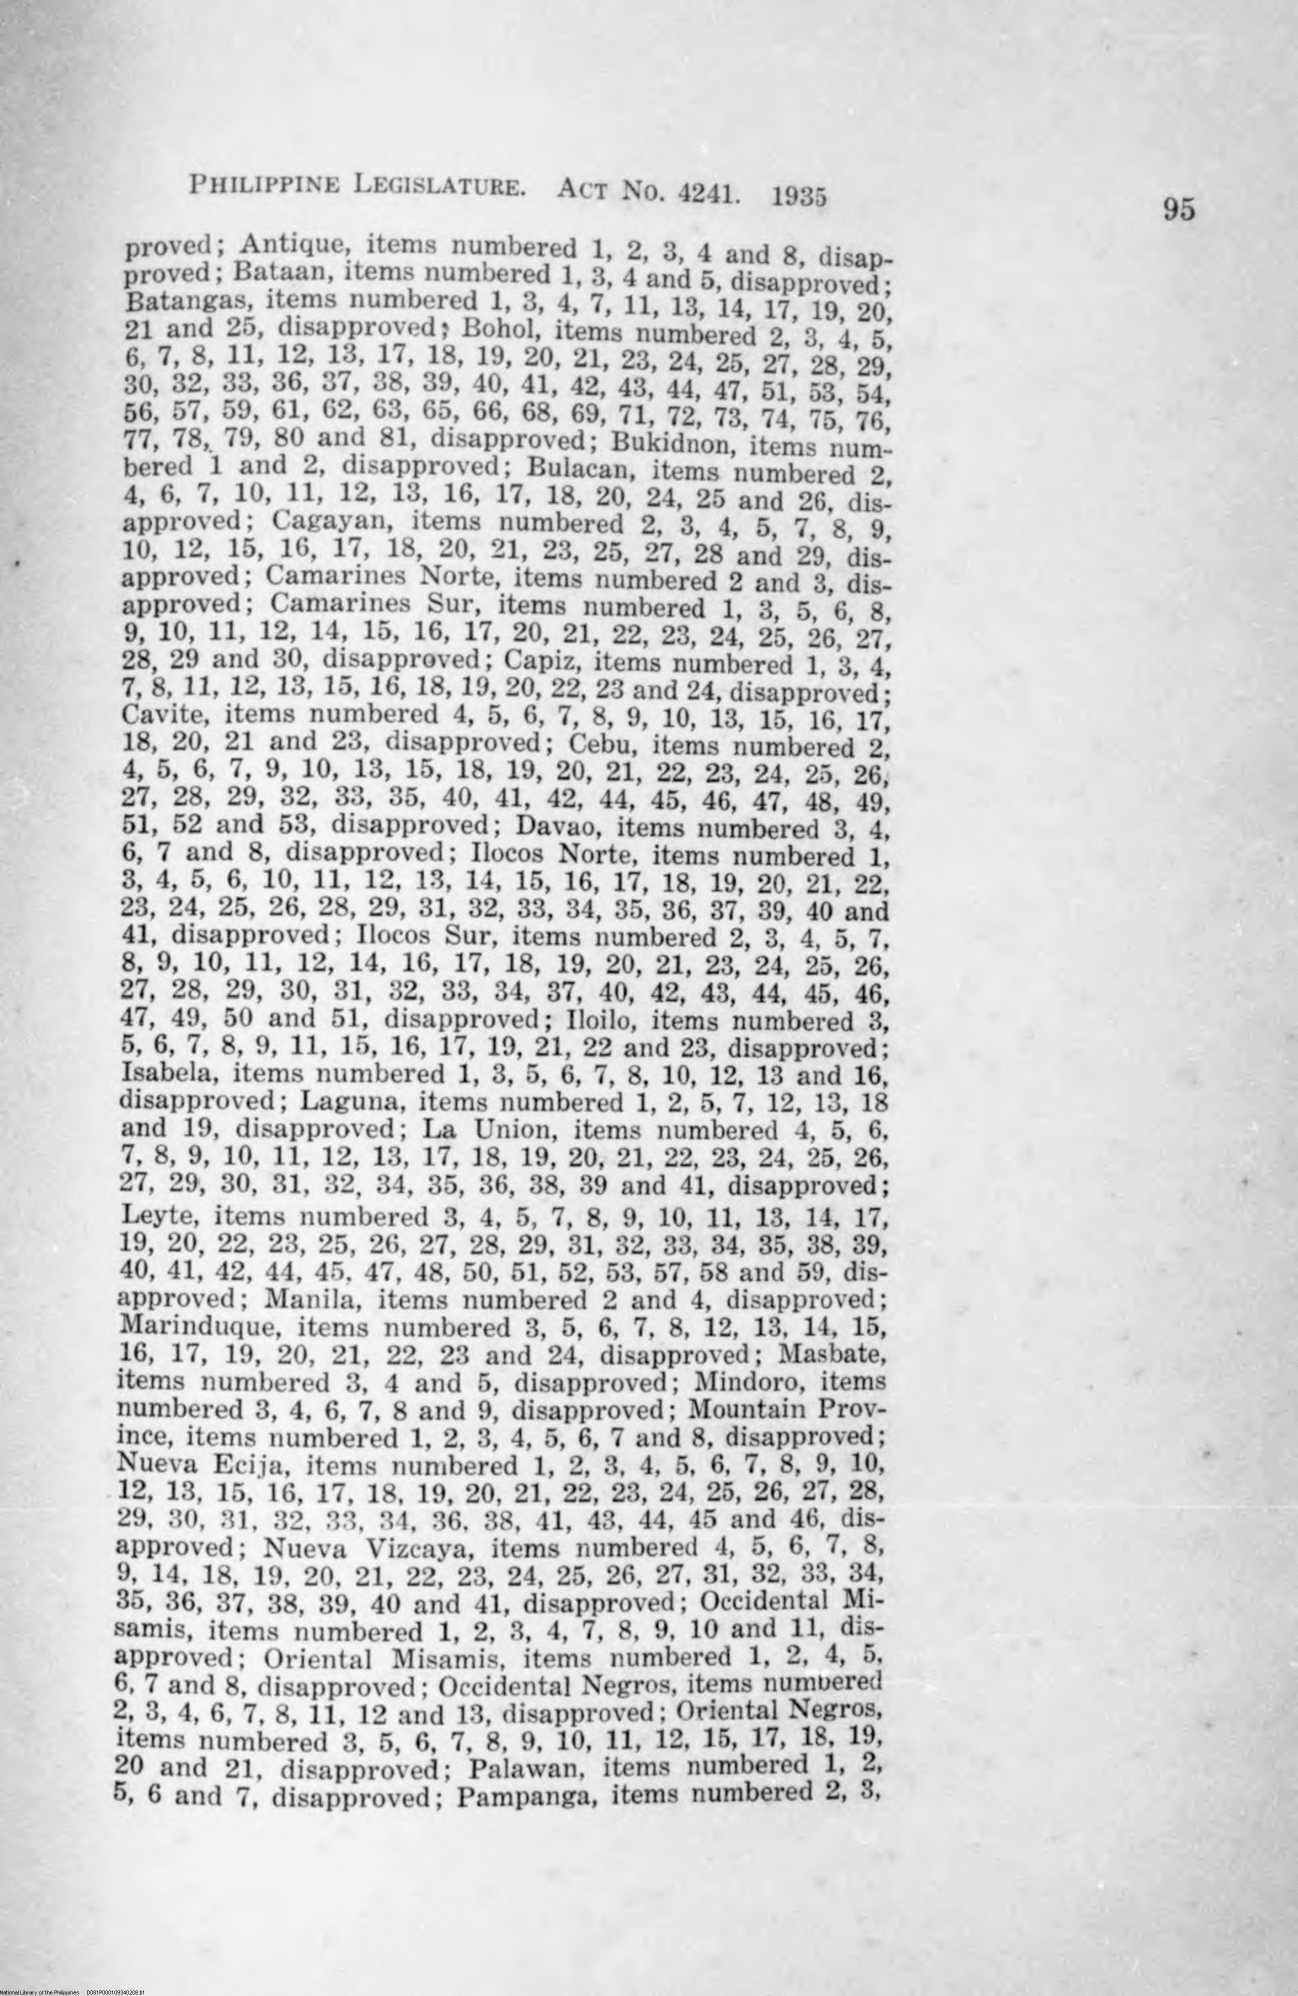 PHILIPPINE LEGISLATURE. ACT NO. 4241. 1935
95
proved; Antique, items numbered 1, 2, 3, 4 and 8, disap-
proved; Bataan, items numbered 1, 3, 4 and 5, disapproved;
Batangas, items numbered 1, 3, 4, 7, 11, 13, 14, 17, 19, 20,
21 and 25, disapproved; Bohol, items numbered 2, 3, 4, 5,
6, 7, 8, 11, 12, 13, 17, 18, 19, 20, 21, 23, 24, 25, 27, 28, 29,
30, 32, 33, 36, 37, 38, 39, 40, 41, 42, 43, 44, 47, 51, 53, 54,
56, 57, 59, 61, 62, 63, 65, 66, 68, 69, 71, 72, 73, 74, 75, 76,
77, 78, 79, 80 and 81, disapproved; Bukidnon, items num-
bered 1 and 2, disapproved; Bulacan, items numbered 2,
4, 6, 7, 10, 11, 12, 13, 16, 17, 18, 20, 24, 25 and 26, dis-
approved; Cagayan, items numbered 2, 3, 4, 5, 7, 8, 9,
10, 12, 15, 16, 17, 18, 20, 21, 23, 25, 27, 28 and 29, dis-
approved; Camarines Norte, items numbered 2 and 3, dis-
approved; Camarines Sur, items numbered 1, 3, 5, 6, 8,
9, 10, 11, 12, 14, 15, 16, 17, 20, 21, 22, 23, 24, 25, 26, 27,
28, 29 and 30, disapproved; Capiz, items numbered 1, 3, 4,
7, 8, 11, 12, 13, 15, 16, 18, 19, 20, 22, 23 and 24, disapproved;
Cavite, items numbered 4, 5, 6, 7, 8, 9, 10, 13, 15, 16, 17,
18, 20, 21 and 23, disapproved; Cebu, items numbered 2,
4, 5, 6, 7, 9, 10, 13, 15, 18, 19, 20, 21, 22, 23, 24, 25, 26,
27, 28, 29, 32, 33, 35, 40, 41, 42, 44, 45, 46, 47, 48, 49,
51, 52 and 53, disapproved; Davao, items numbered 3, 4,
6, 7 and 8, disapproved; Ilocos Norte, items numbered 1,
3, 4, 5, 6, 10, 11, 12, 13, 14, 15, 16, 17, 18, 19, 20, 21, 22,
23, 24, 25, 26, 28, 29, 31, 32, 33, 34, 35, 36, 37, 39, 40 and
41, disapproved; Ilocos Sur, items numbered 2, 3, 4, 5, 7,
8, 9, 10, 11, 12, 14, 16, 17, 18, 19, 20, 21, 23, 24, 25, 26,
27, 28, 29, 30, 31, 32, 33, 34, 37, 40, 42, 43, 44, 45, 46,
47, 49, 50 and 51, disapproved; Iloilo, items numbered 3,
5, 6, 7, 8, 9, 11, 15, 16, 17, 19, 21, 22 and 23, disapproved;
Isabela, items numbered 1, 3, 5, 6, 7, 8, 10, 12, 13 and 16,
disapproved; Laguna, items numbered 1, 2, 5, 7, 12, 13, 18
and 19, disapproved; La Union, items numbered 4, 5, 6,
7, 8, 9, 10, 11, 12, 13, 17, 18, 19, 20, 21, 22, 23, 24, 25, 26,
27, 29, 30, 31, 32, 34, 35, 36, 38, 39 and 41, disapproved;
Leyte, items numbered 3, 4, 5, 7, 8, 9, 10, 11, 13, 14, 17,
19, 20, 22, 23, 25, 26, 27, 28, 29, 31, 32, 33, 34, 35, 38, 39,
40, 41, 42, 44, 45, 47, 48, 50, 51, 52, 53, 57, 58 and 59, dis-
approved; Manila, items numbered 2 and 4, disapproved;
Marinduque, items numbered 3, 5, 6, 7, 8, 12, 13, 14, 15,
16, 17, 19, 20, 21, 22, 23 and 24, disapproved; Masbate,
items numbered 3, 4 and 5, disapproved; Mindoro, items
numbered 3, 4, 6, 7, 8 and 9, disapproved; Mountain Prov-
ince, items numbered 1, 2, 3, 4, 5, 6, 7 and 8, disapproved;
Nueva Ecija, items numbered 1, 2, 3, 4, 5, 6, 7, 8, 9, 10,
12, 13, 15, 16, 17, 18, 19, 20, 21, 22, 23, 24, 25, 26, 27, 28,
29, 30, 31, 32, 33, 34, 36, 38, 41, 43, 44, 45 and 46, dis-
approved; Nueva Vizcaya, items numbered 4, 5, 6, 7, 8,
9, 14, 18, 19, 20, 21, 22, 23, 24, 25, 26, 27, 31, 32, 33, 34,
35, 36, 37, 38, 39, 40 and 41, disapproved; Occidental Mi-
samis, items numbered 1, 2, 3, 4, 7, 8, 9, 10 and 11, dis-
approved; Oriental Misamis, items numbered 1, 2, 4, 5,
6, 7 and 8, disapproved; Occidental Negros, items numbered
2, 3, 4, 6, 7, 8, 11, 12 and 13, disapproved; Oriental Negros,
items numbered 3, 5, 6, 7, 8, 9, 10, 11, 12, 15, 17, 18, 19,
20 and 21, disapproved; Palawan, items numbered 1, 2,
5, 6 and 7, disapproved; Pampanga, items numbered 2, 3,
National Library of the Philippines